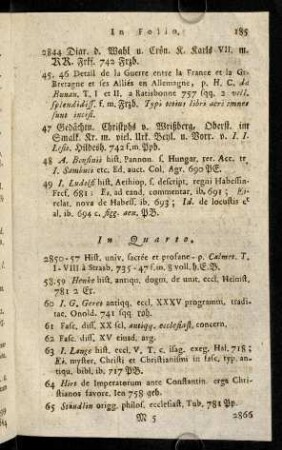 In Folio, 185
2844 Diar. d. Wahl u. Crön. K. Karls VII. m.
KK. Frkf. 742 Frzb.
45. 46 Detail de la Guerre entre la France et la Gr.
Bretagne et ses Alliés en Allemagne, p. H. C. de
Bunau, T. I et II, a Ratisbonne 757 sqq. 2 voll.
splendidiss. f. m. Frzb. Typi totius libri aeri omnes
sunt incisi.
47 Gedächtn. Christphs v. Wrißberg, Oberst. im
Smalk. Kr. m. viel. Urk. Beyl. u. Vorr. v. I. I.
Lesse, Hildesh. 742 f.m. Ppb.
48 A. Bonfinii hist. Pannon. s. Hungar. rer. Acc. tr.
I. Sambuic etc. Ed. auct. Col. Agr. 690 PE.
49 I. Ludolfi hist. Aethiop. s. descript. regni Habessin-
Frcf. 681: Ej. ad eand. commentar. ib. 691; Ej.
relat. nova de Habess. ib. 693; Id. de locustis c.
al. ib. 694 c. figg. aen. PB.
In Quarto.
2850-57 Hist. univ. sacrée et profane - p. Calmet. T.
I-VIII à Strasb. 735-47 f.m. 8 voll. h.E.B.
58.59 Henke hist. antiqu. dogm. de unit. eccl. Helmst.
781 2 Er.
60 I. G. Geret antiqu. eccl. XXXV programm. tradi-
tae. Onold. 741 sqq. roh.
61 Fasc. diss. XX scl. antiqq. ecclesiast. concern.
62 Fasc. diss. XV eiusd. arg.
63 I. Lange hist. eccl. V. T. c. isag. exeg. Hal. 718;
Ei. myster. Christi et Christianismi in fasc. typ. an-
tiqu. bibl. ib. 717 PB.
64 Hier de Imperatorum ante Constantin. erga Chr-
istianos favore. Ien 758 geh.
65 Stäudlin origg. philos. ecclesiast. Tub. 781 Pp.
M 5 2866